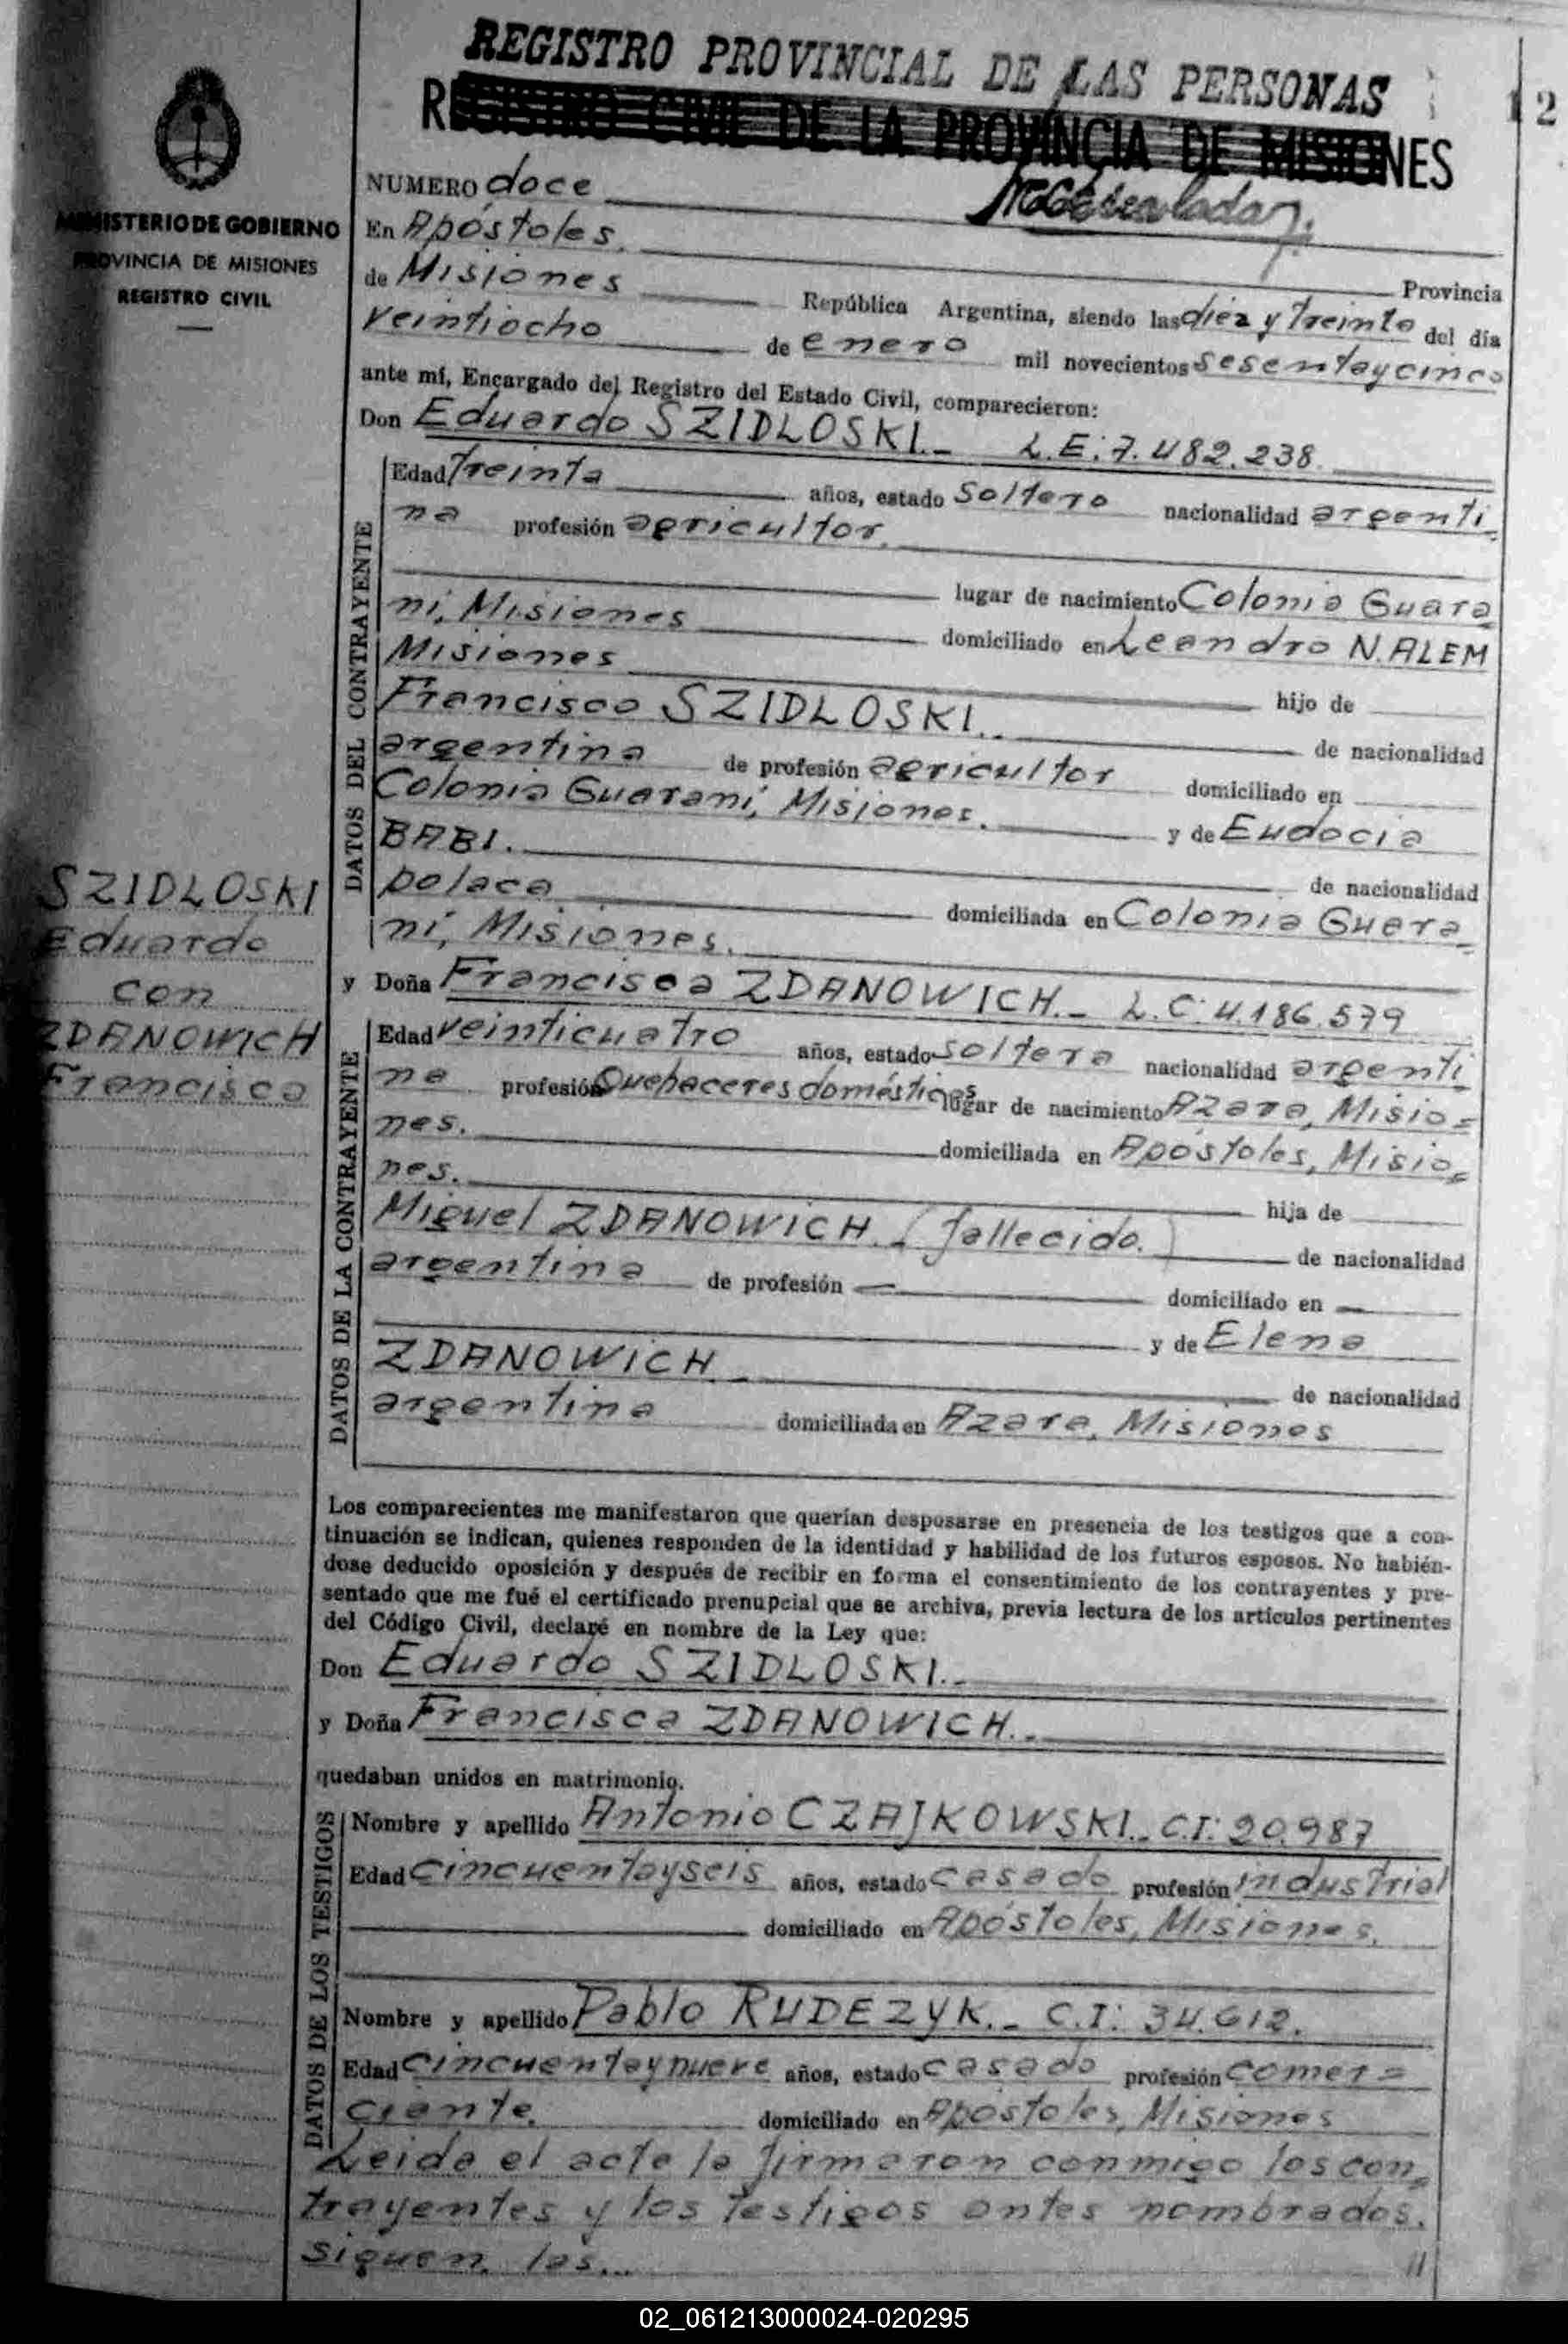 REGISTRO PROVINCIAL DE LAS PERSONAS
12
REGISTRO CIVIL DE LA PROVINCIA DE MISIONES
MINISTERIO DE GOBIERNO
PROVINCIA DE MISIONES
REGISTRO CIVIL
NUMERO doce
En Apóstoles.
Provincia
de Misiones República Argentina, siendo las diez y treinta del día
veintiocho de enero mil novecientos sesentaycinco
ante mí, Encargado del Registro del Estado Civil, comparecieron:
Don Eduardo SZIDLOSKI.- L.E: 7.482.238
DATOS DEL CONTRAYENTE
Edad treinta años, estado soltero nacionalidad argenti
na profesión agricultor.
lugar de nacimiento Colonia Guara
ní, Misiones domiciliado en Leandro N. ALEM
Misiones hijo de
Francisco SZIDLOSKI.. de nacionalidad
argentina de profesión agricultor domiciliado en
Colonia Guaraní, Misiones. y de Eudocia
BABI. de nacionalidad
polaca domiciliada en Colonia Guara-
ní, Misiones.
SZIDLOSKI
Eduardo
con
ZDANOWICH
Francisca
y Doña Francisca ZDANOWICH.- L.C: 4.186.579
DATOS DE LA CONTRAYENTE
Edad veinticuatro años, estado soltera nacionalidad argenti
na profesión Quehaceres domésticos lugar de nacimiento Azara, Misio=
nes. domiciliada en Apóstoles, Misio=
nes. hija de
Miguel ZDANOWICH.- (fallecido.) de nacionalidad
argentina de profesión — domiciliado en —
y de Elena
ZDANOWICH de nacionalidad
argentina domiciliada en Azara, Misiones
Los comparecientes me manifestaron que querían desposarse en presencia de los testigos que a con-
tinuación se indican, quienes responden de la identidad y habilidad de los futuros esposos. No habién-
dose deducido oposición y después de recibir en forma el consentimiento de los contrayentes y pre-
sentado que me fué el certificado prenupcial que se archiva, previa lectura de los artículos pertinentes
del Código Civil, declaré en nombre de la Ley que:
Don Eduardo SZIDLOSKI.-
y Doña Francisca ZDANOWICH.-
quedaban unidos en matrimonio.
DATOS DE LOS TESTIGOS
Nombre y apellido Antonio CZAJKOWSKI.- C.I: 20.987
Edad cincuentayseis años, estado casado profesión industrial
domiciliado en Apóstoles, Misiones.
Nombre y apellido Pablo RUDEZYK.- C.I: 34.612.
Edad cincuentaynueve años, estado casado profesión comer=
ciante. domiciliado en Apóstoles, Misiones
Leida el acta la firmaron conmigo los con=
trayentes y los testigos antes nombrados.
siguen las... //
02_061213000024-020295